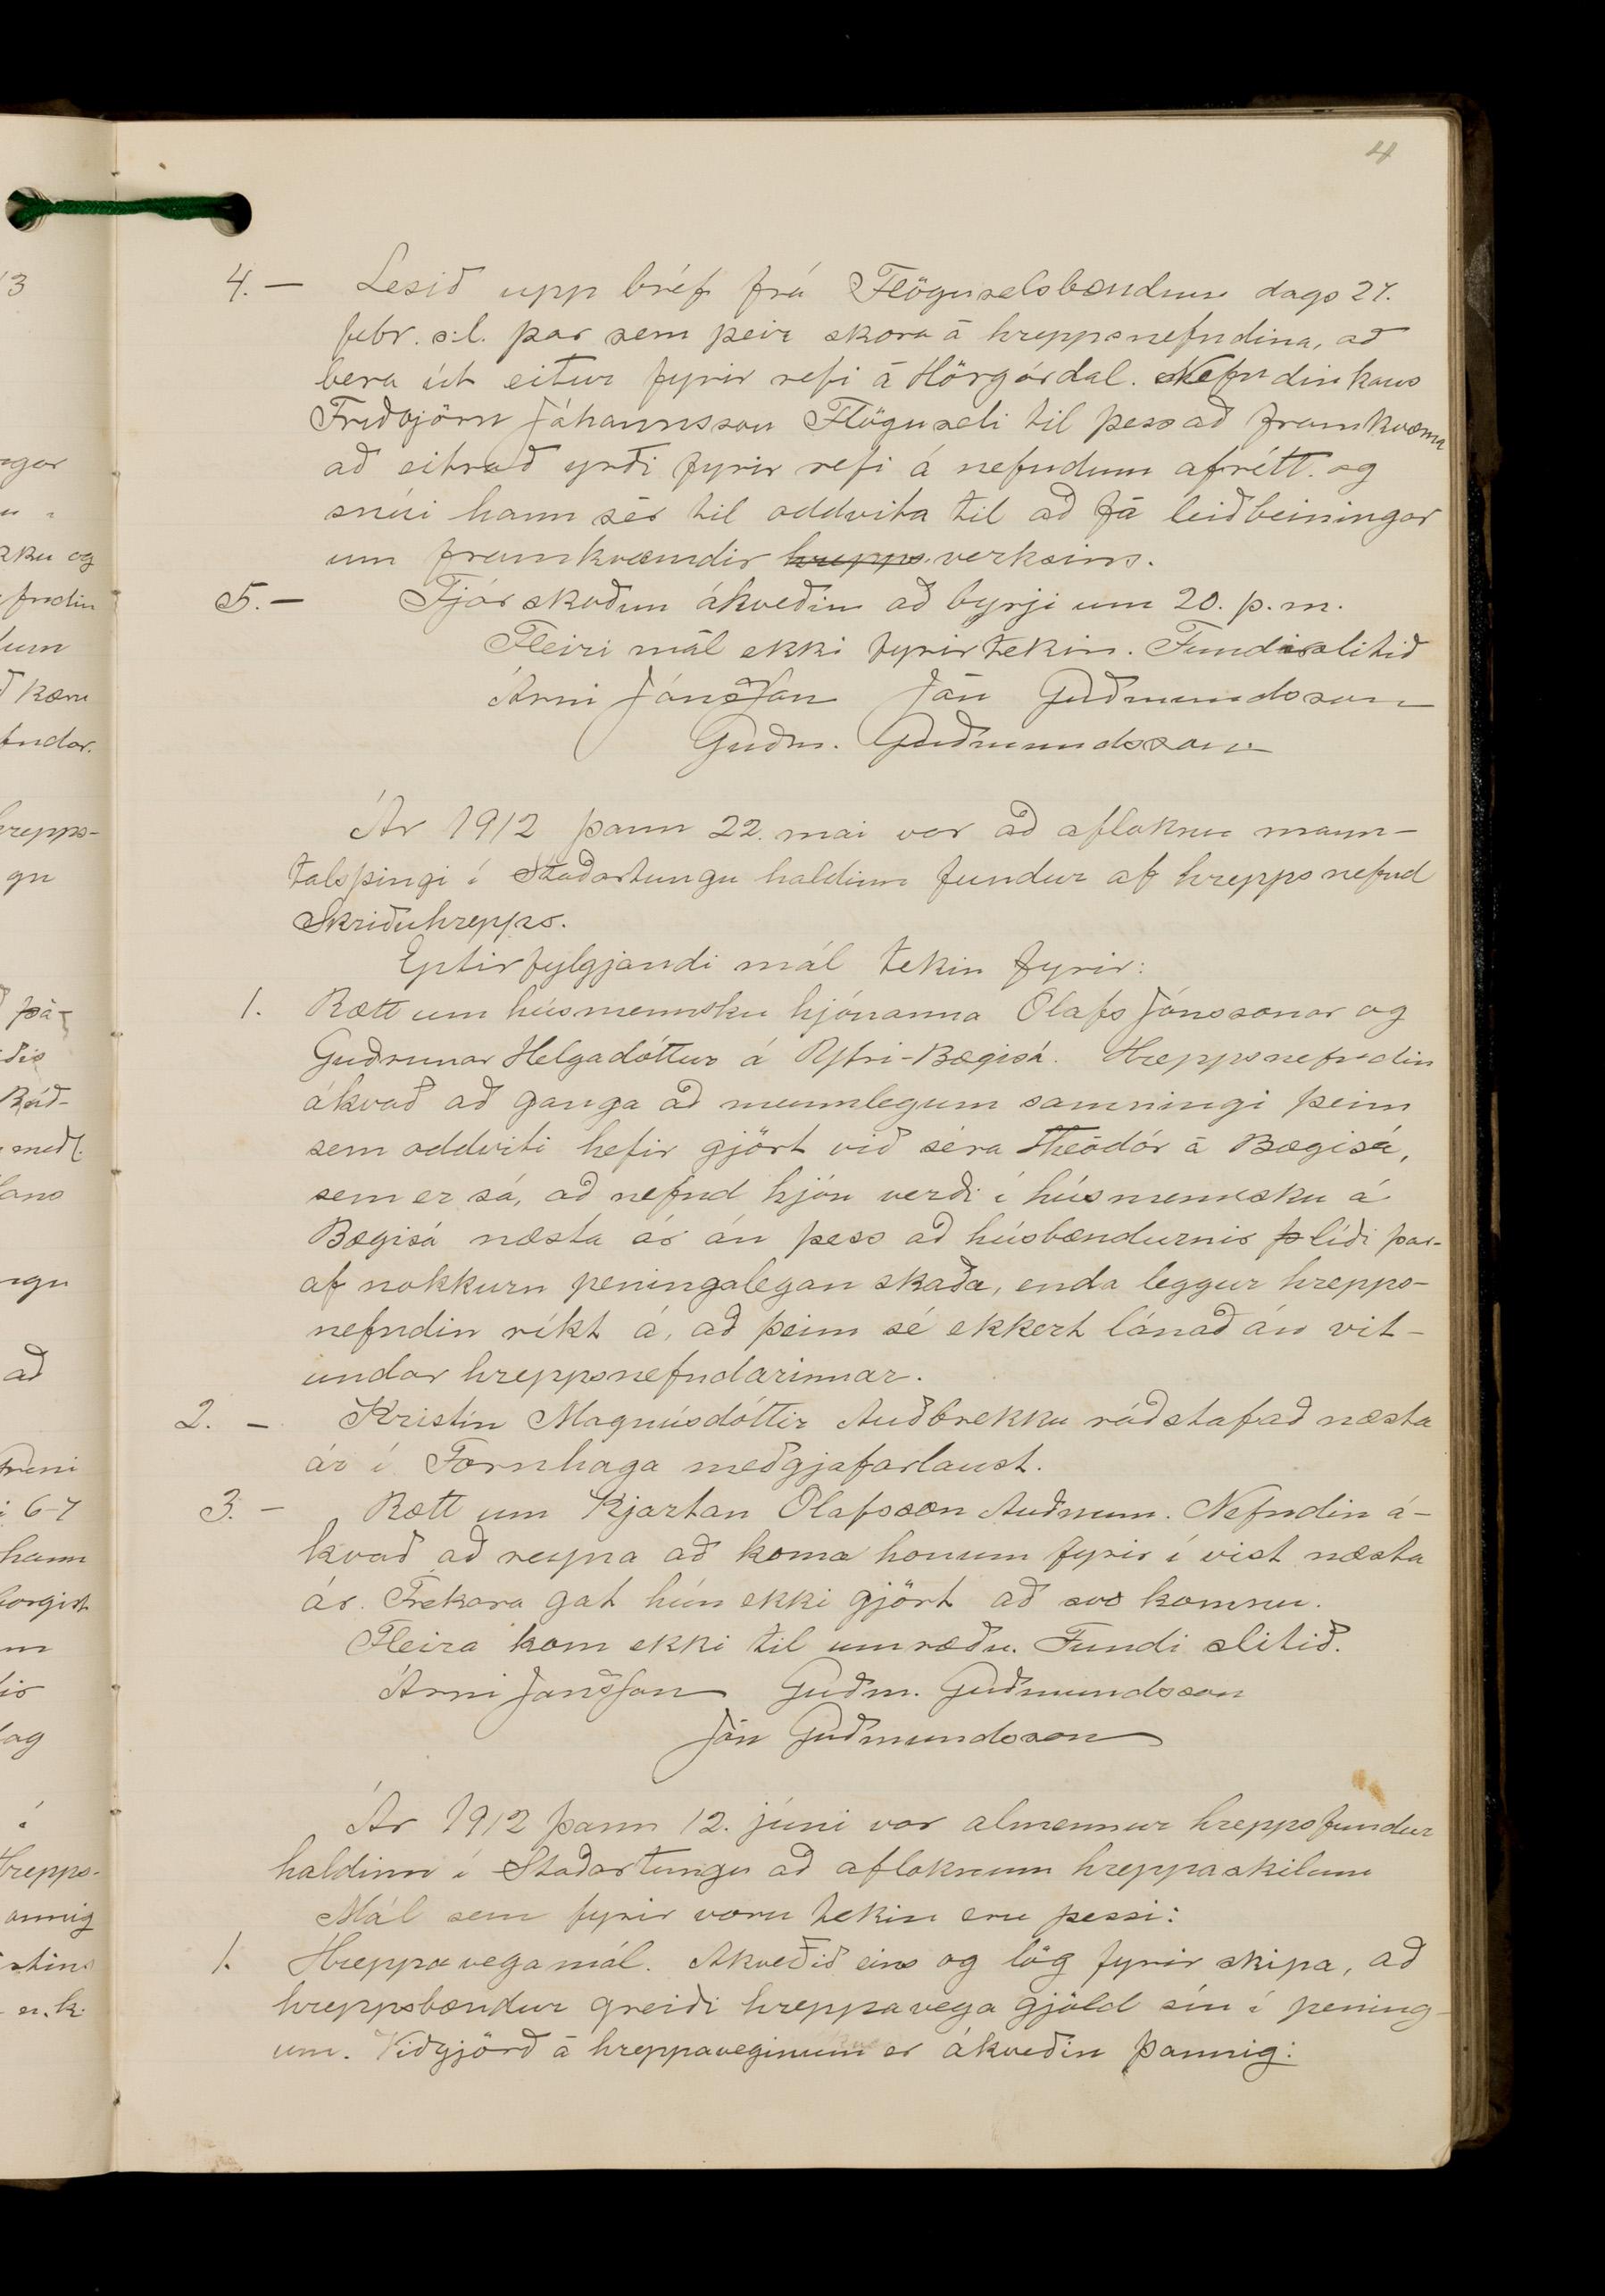 4
4. — Lesið upp bréf frá Flöguselsbændum dags 27.
febr. s:l. þar sem þeir skora á hreppsnefndina, að
bera út eitur fyrir refi á Hörgárdal. Nefndin kaus
Friðbjörn Jóhannsson Flöguseli til þess að framkvæma
að eitrað yrði fyrir refi á nefndum afrétt. og
snúi hann sér til oddvita til að fá leiðbeiningar
um framkvæmdir hrepps verksins.
5. — Fjárskoðun ákveðin að byrji um 20. þ.m.
Fleiri mál ekki fyrirtekin. Fundi slitið
Árni Jónsson Jón Guðmundsson
Guðm. Guðmundsson
Ár 1912 þann 22. mai var að afloknu mann-
talsþingi í Staðartungu haldinn fundur af hreppsnefnd
Skriðuhrepps.
Eptirfylgjandi mál tekin fyrir:
1. Rætt um húsmennsku hjónanna Ólafs Jónssonar og
Guðrúnar Helgadóttur á Ytri-Bægisá. Hreppsnefndin
ákvað að ganga að munnlegum samningi þeim
sem oddviti hefir gjört við séra Theódór á Bægisá,
sem er sá, að nefnd hjón verði í húsmennsku á
Bægisá næsta ár án þess að húsbændurnir líði þar-
af nokkurn peningalegan skaða, enda leggur hrepps-
nefndin ríkt á, að þeim sé ekkert lánað án vit-
undar hreppsnefndarinnar.
2. — Kristín Magnúsdóttir Auðbrekku ráðstafað næsta
ár í Fornhaga meðgjafarlaust.
3. — Rætt um Kjartan Ólafsson Auðnum. Nefndin á-
kvað að reyna að koma honum fyrir í vist næsta
ár. Frekara gat hún ekki gjört að svo komnu.
Fleira kom ekki til umræðu. Fundi slitið.
Árni Jónsson Guðm. Guðmundsson
Jón Guðmundsson
Ár 1912 þann 12. júni var almennur hreppsfundur
haldinn í Staðartungu að afloknum hreppaskilum
Mál sem fyrir voru tekin eru þessi:
1. Hreppavegamál. Ákveðið eins og lög fyrir skipa, að
hreppsbændur greiði hreppavega gjöld sín í pening-
um. Viðgjörð á hreppaveginum er ákveðin þannig: